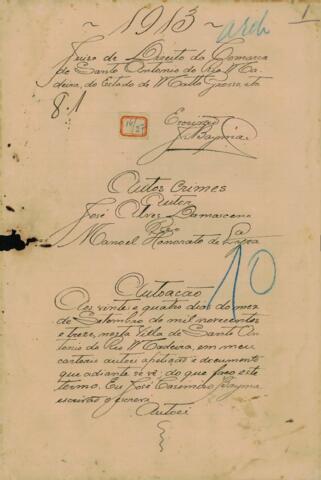 1
~ 1913 ~ arch
Juizo de Direito da Comarca
de Santo Antonio do Rio Ma-
deira, do Estado de Matto Grosso, etc
8.1
Escrivão
J. Bayma
Autos Crimes
Autor
José Alves Damasceno
Réo
Manoel Honorato de
10
Autoação
Aos vinte e quatro dias do mez
de Setembro de mil novecentos
e treze, nesta Villa de Santo An-
tonio do Rio Madeira, em meu
cartorio autuei a petição e documento
que adiante se vê; do que faço este
termo. Eu José Bayma
escrivão o escrevi
Autuei